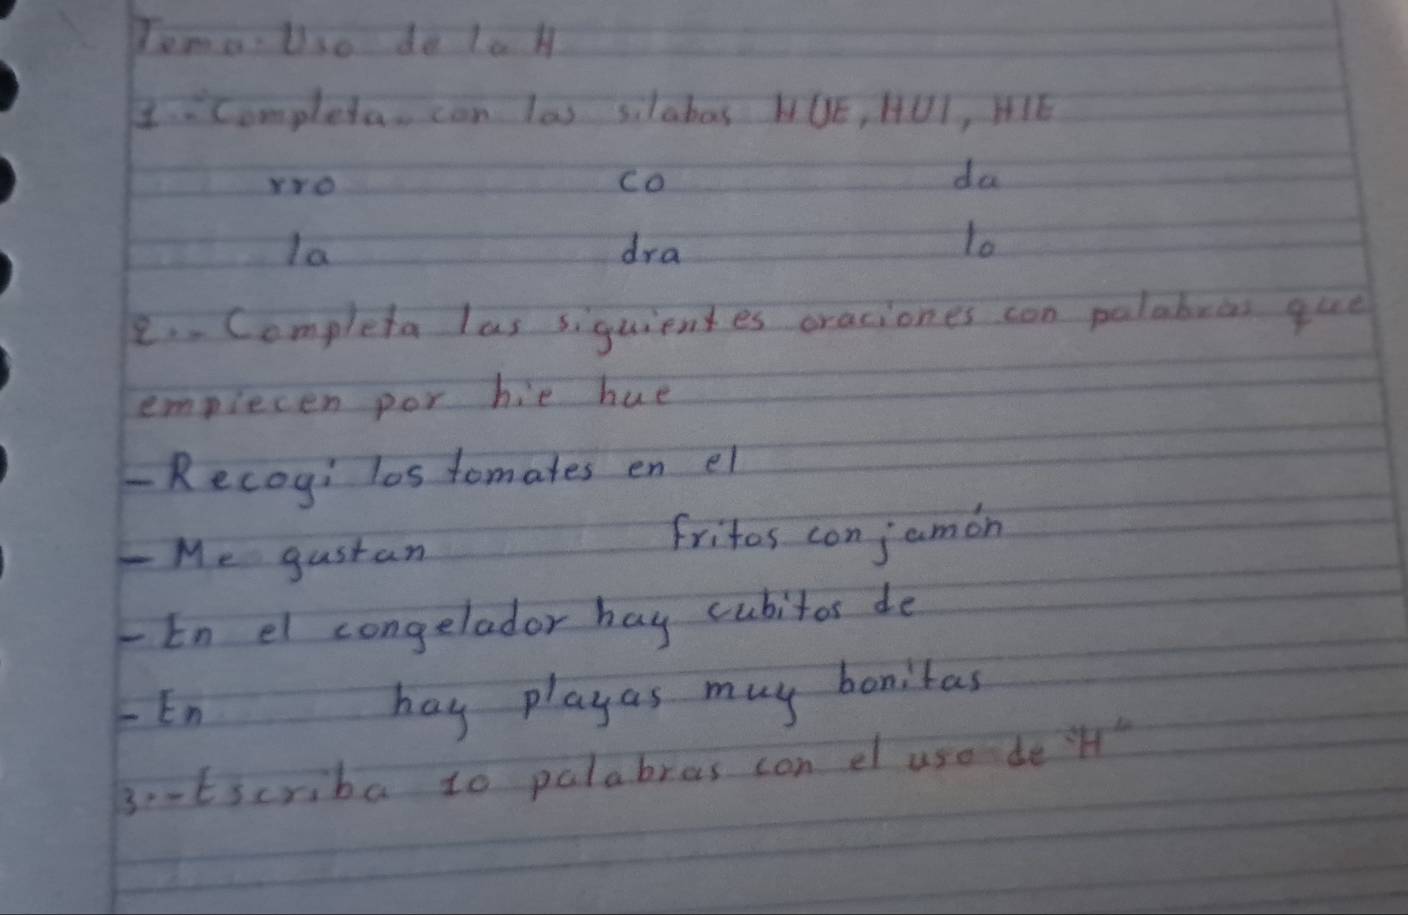 Tema: Uso de la H
1.- Completa con las silabas HUE, HUI, HIE
rro co da
la dra lo
2.- Completa las siguientes oraciones con palabras que
empiecen por hie hue
- Recogi los tomates en el
- Me gustan fritos con jamón
- En el congelador hay cubitos de
- En hay playas muy bonitas
3.- Escriba 10 palabras con el uso de "H"